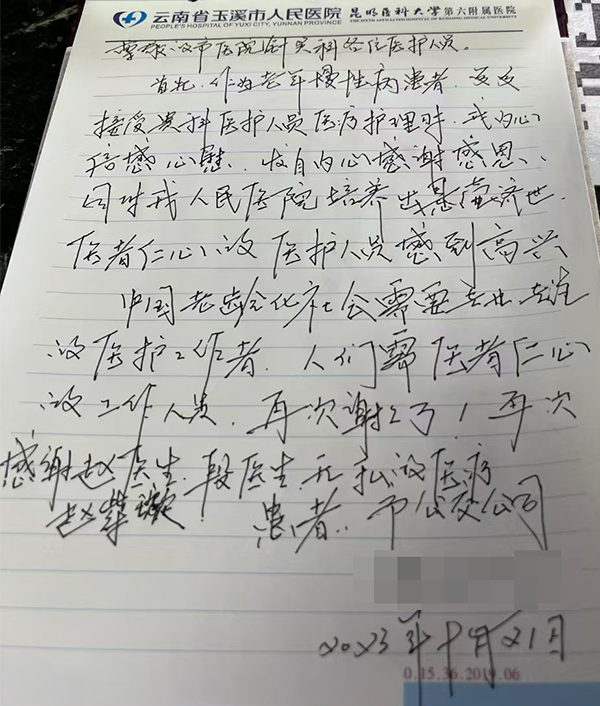 云南省玉溪市人民医院 昆明医科大学第六附属医院
PEOPLE'S HOSPITAL OF YUXI CITY, YUNNAN PROVINCE THE SIXTH AFFILIATED HOSPITAL OF KUNMING MEDICAL UNIVERSITY
尊敬的市医院针灸科各位医护人员。
首先、作为老年慢性病患者、
接受灸科医护人员医疗护理时、我内心
倍感心慰、发自内心感谢感恩、
同时我人民医院培养出悬壶济世
医者仁心的医护人员感到高兴
中国老龄化社会需要
的医护工作者、人们需医者仁心
的工作人员、再次谢谢了！再次
感谢赵医生、段医生、医疗
赵 患者、市公交公司
2023年十月21日
0.15.36.2019.06